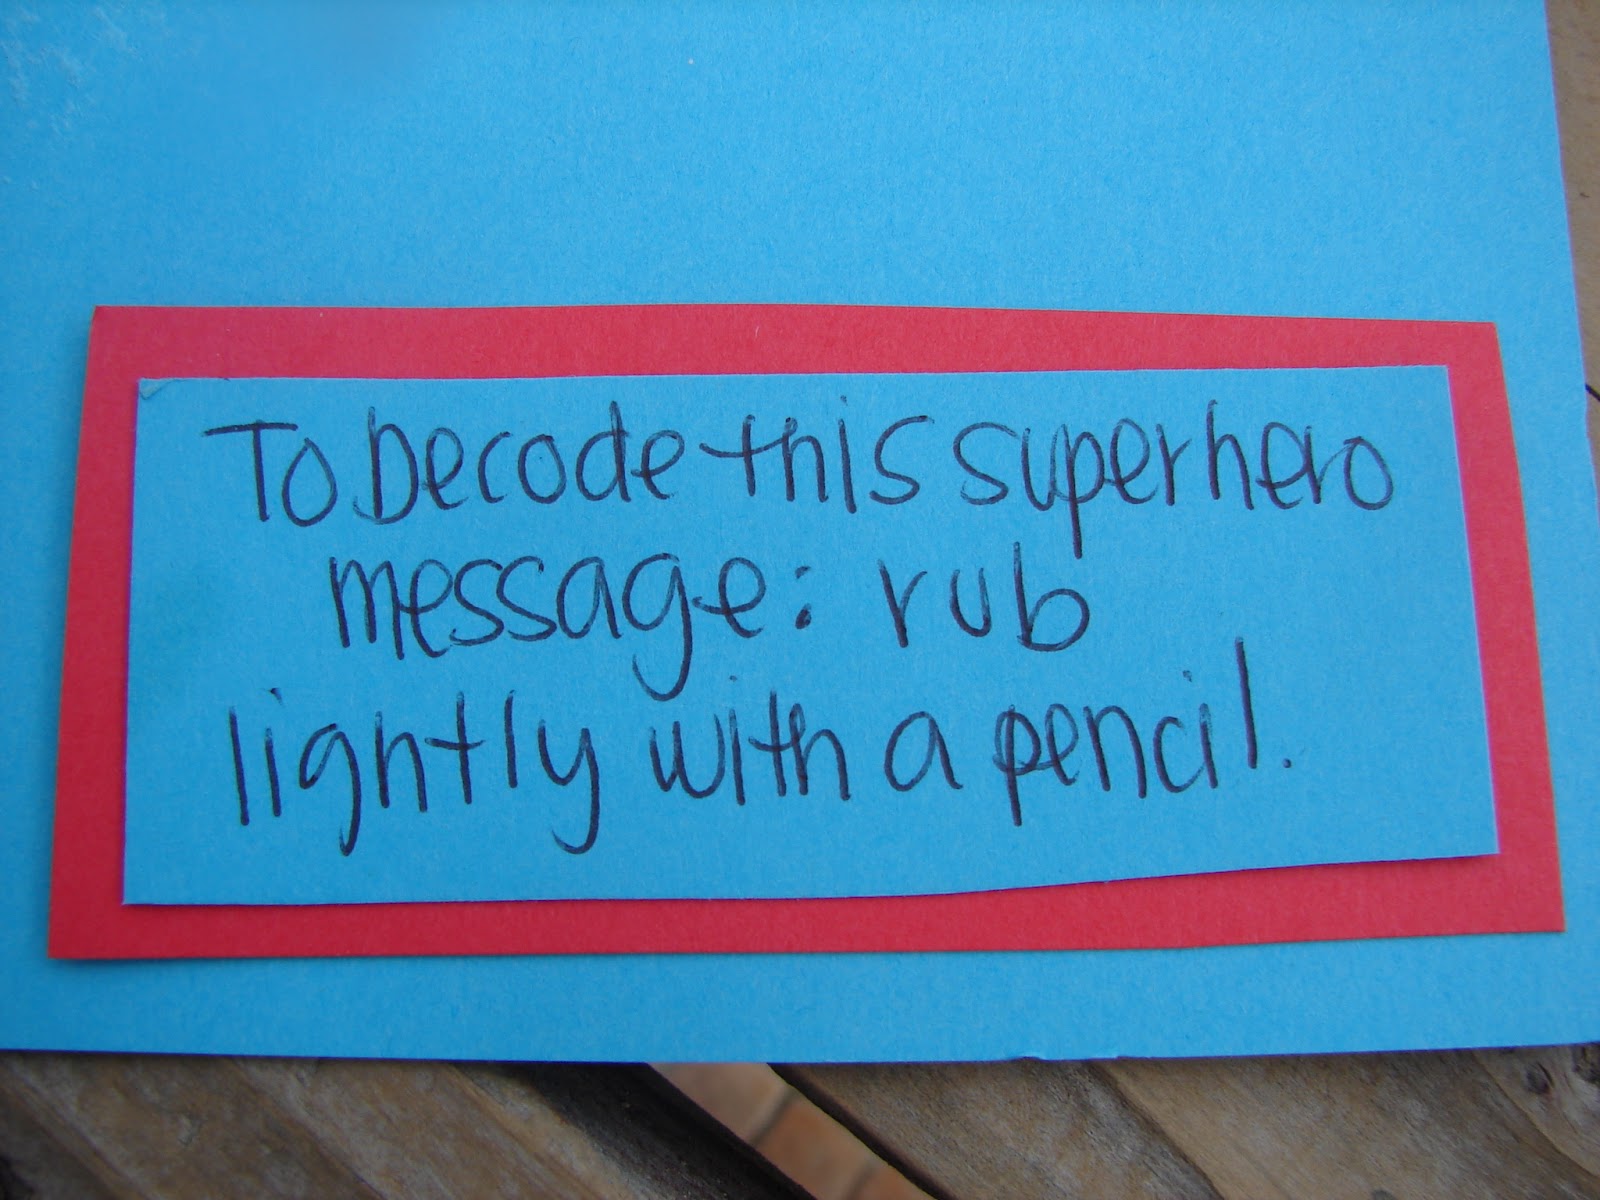 To Decode this superhero
message: rub
lightly with a pencil.